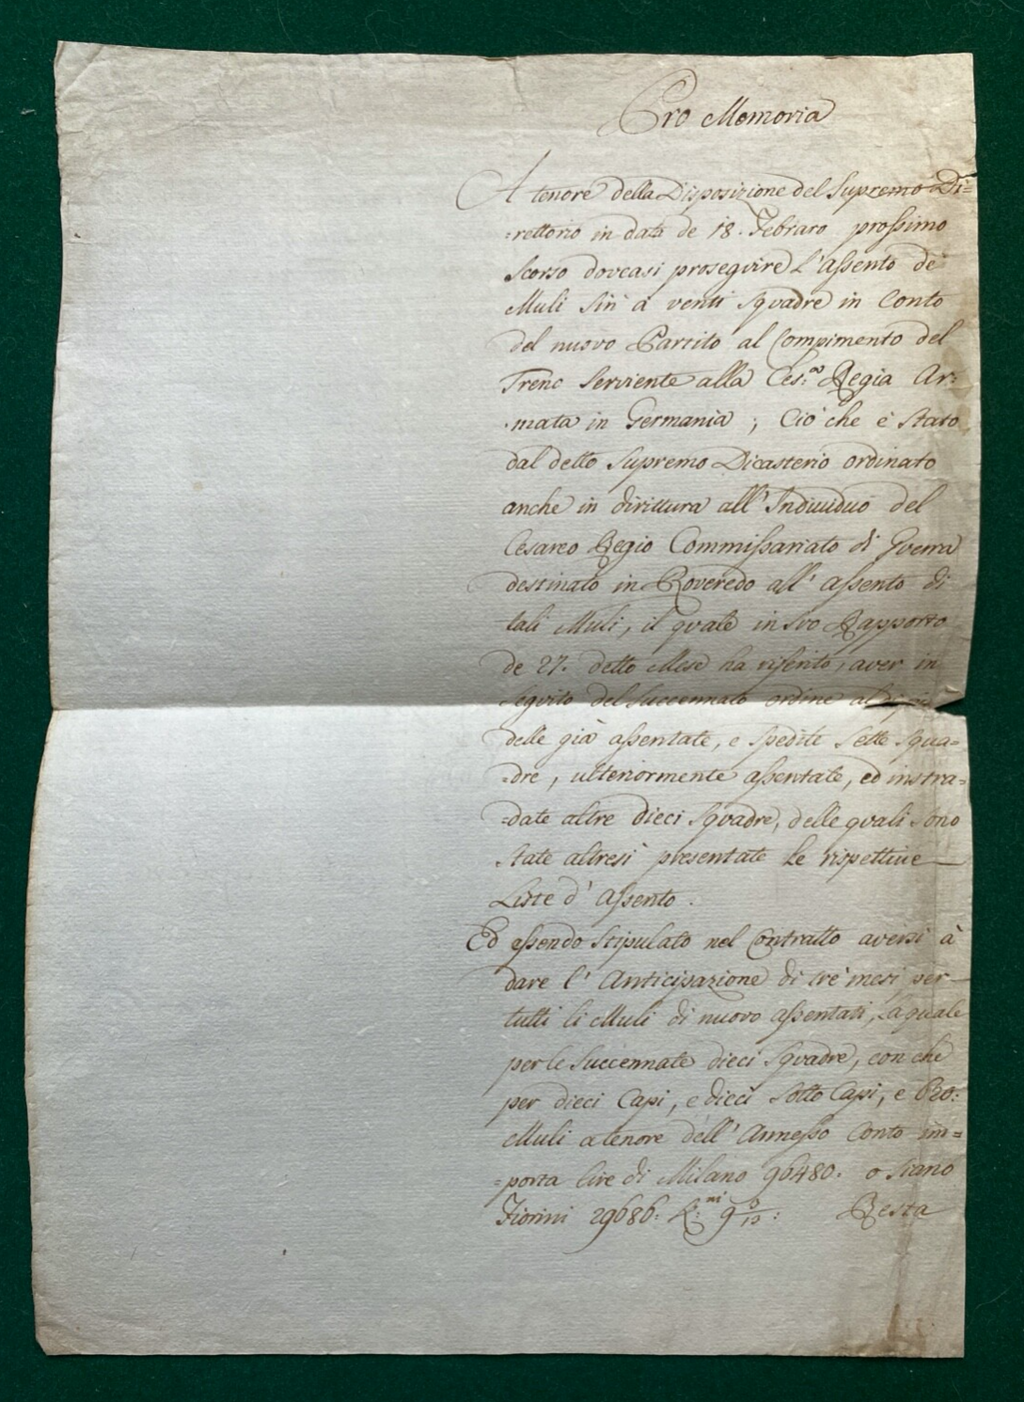 Pro Memoria
A tenore della Disposizione del Supremo Di=
=rettorio in data de 18. Febraro prossimo
scorso doveasi proseguire l'assento de
Muli sin' a venti squadre in Conto
del nuovo Partito al Compimento del
Treno serviente alla Ces.ª Regia Ar=
=mata in Germania ; Ciò che è stato
dal detto supremo Dicasterio ordinato
anche in dirittura all' Individuo del
Cesareo Regio Commissariato di Guerra
destinato in Roveredo all' assento di
tali Muli, il quale in suo Rapporto
de 27. detto Mese ha riferito, aver in
seguito del succennato ordine al di
delle già assentate, e spedite sette squa=
=dre, ulteriormente assentate, ed instra=
=date altre dieci squadre, delle quali sono
state altresì presentate le rispettive
Liste d' Assento.
Ed essendo stipulato nel Contratto aversi à
dare l' Anticipazione di trè mesi per
tutti li Muli di nuovo assentati, la quale
per le succennate dieci squadre, con che
per dieci Capi, e dieci sotto Capi, e
Muli a tenore dell' Annesso Conto im=
=porta lire di Milano 96480: o siano
Fiorini 29686: K:ni 9 9/13: Resta